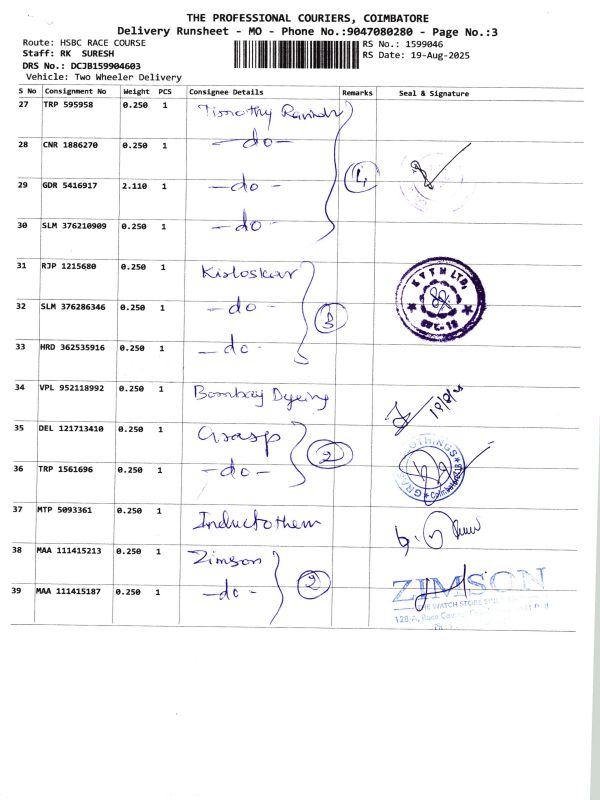 THE PROFESSIONAL COURIERS, COIMBATORE
Delivery Runsheet - MO - Phone No.:9047080280 - Page No.:3
Route: HSBC RACE COURSE
RS No.: 1599046
Staff: RK SURESH
RS Date: 19-Aug-2025
DRS No.: DCJB159904603
Vehicle: Two Wheeler Delivery
S No Consignment No Weight PCS Consignee Details Remarks Seal & Signature
27 TRP 595958 0.250 1 Timothy
28 CNR 1886270 0.250 1 -do-
4
29 GDR 5416917 2.110 1 -do-
30 SLM 376210909 0.250 1 -do-
31 RJP 1215680 0.250 1 Kisloskar
32 SLM 376286346 0.250 1 -do-
3
33 HRD 362535916 0.250 1 -do-
34 VPL 952118992 0.250 1 Bombay Dyeing
35 DEL 121713410 0.250 1 Grasp
2
36 TRP 1561696 0.250 1 -do-
37 MTP 5093361 0.250 1 Inductothem
38 MAA 111415213 0.250 1 Zimson
2
39 MAA 111415187 0.250 1 -do-
ZIMSON
THE WATCH STORE
128-A, Race